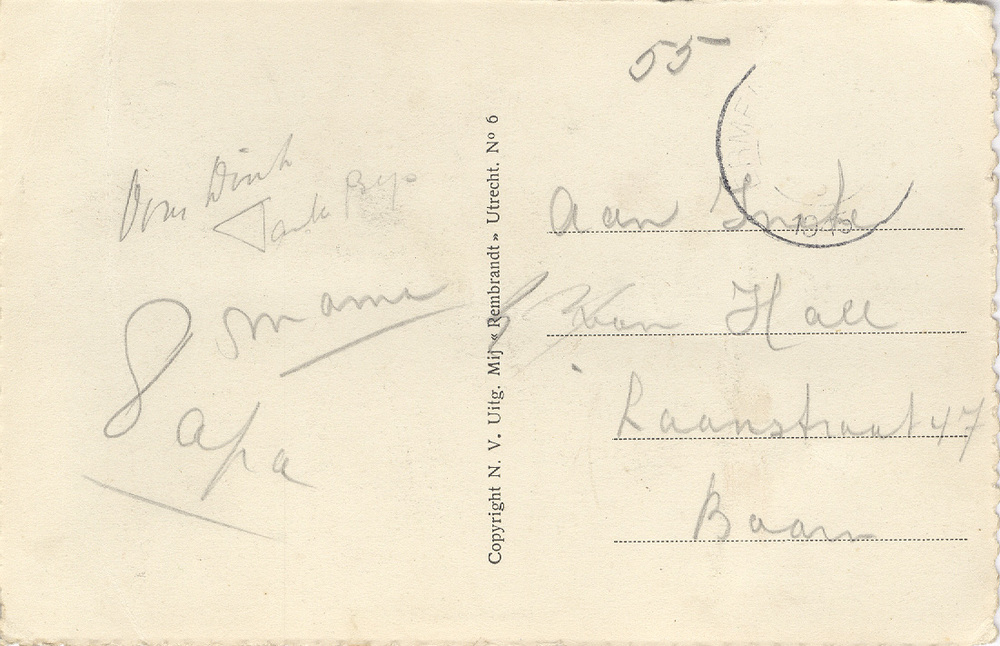 55
Oom Dirk
Tante
Omama
Papa
Copyright N. V. Uitg. Mij « Rembrandt » Utrecht. Nº 6
Aan Ineke
van Hall
Laanstraat 47
Baarn